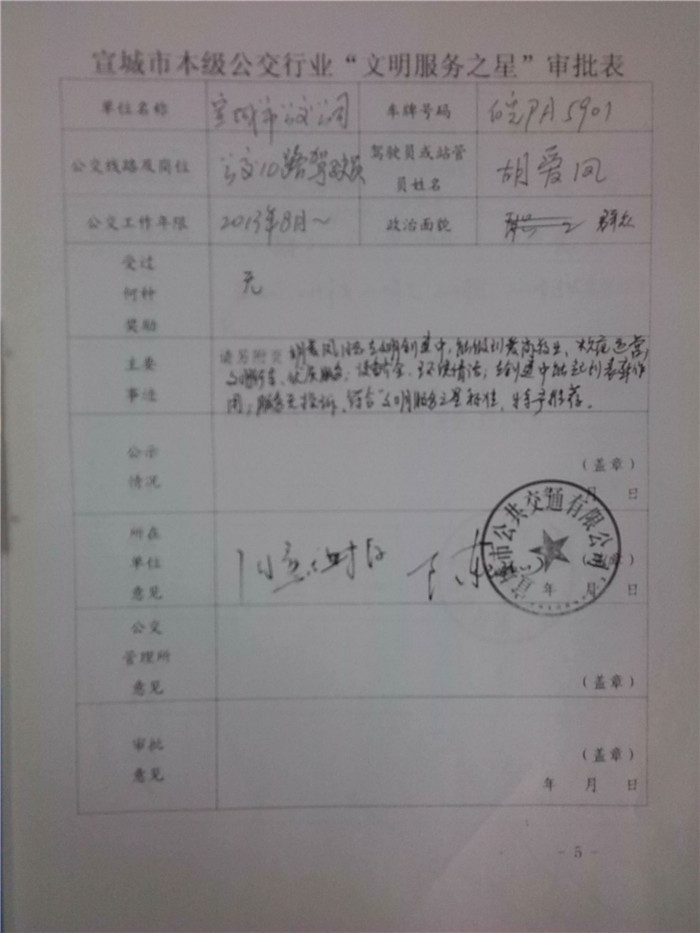 宣城市本级公交行业“文明服务之星”审批表
单位名称 宣城市公交公司 车牌号码 皖PA5901
公交线路及岗位 公交10路驾驶员 驾驶员或站管
员姓名 胡爱凤
公交工作年限 2013年8月～ 政治面貌 群众
受过
何种
奖励
无
主要
事迹
请另附页 胡爱凤 在文明创建中，能做到爱岗敬业、规范运营，
文明行车、优质服务、 在创建中能起到表率作
用，服务无投诉，符合“文明服务之星”标准，特予推荐。
公示
情况
（盖章）
月 日
所在
单位
意见
同意
宣城市公共交通有限公司
年 月 日
公交
管理所
意见
（盖章）
审批
意见
（盖章）
年 月 日
- 5 -